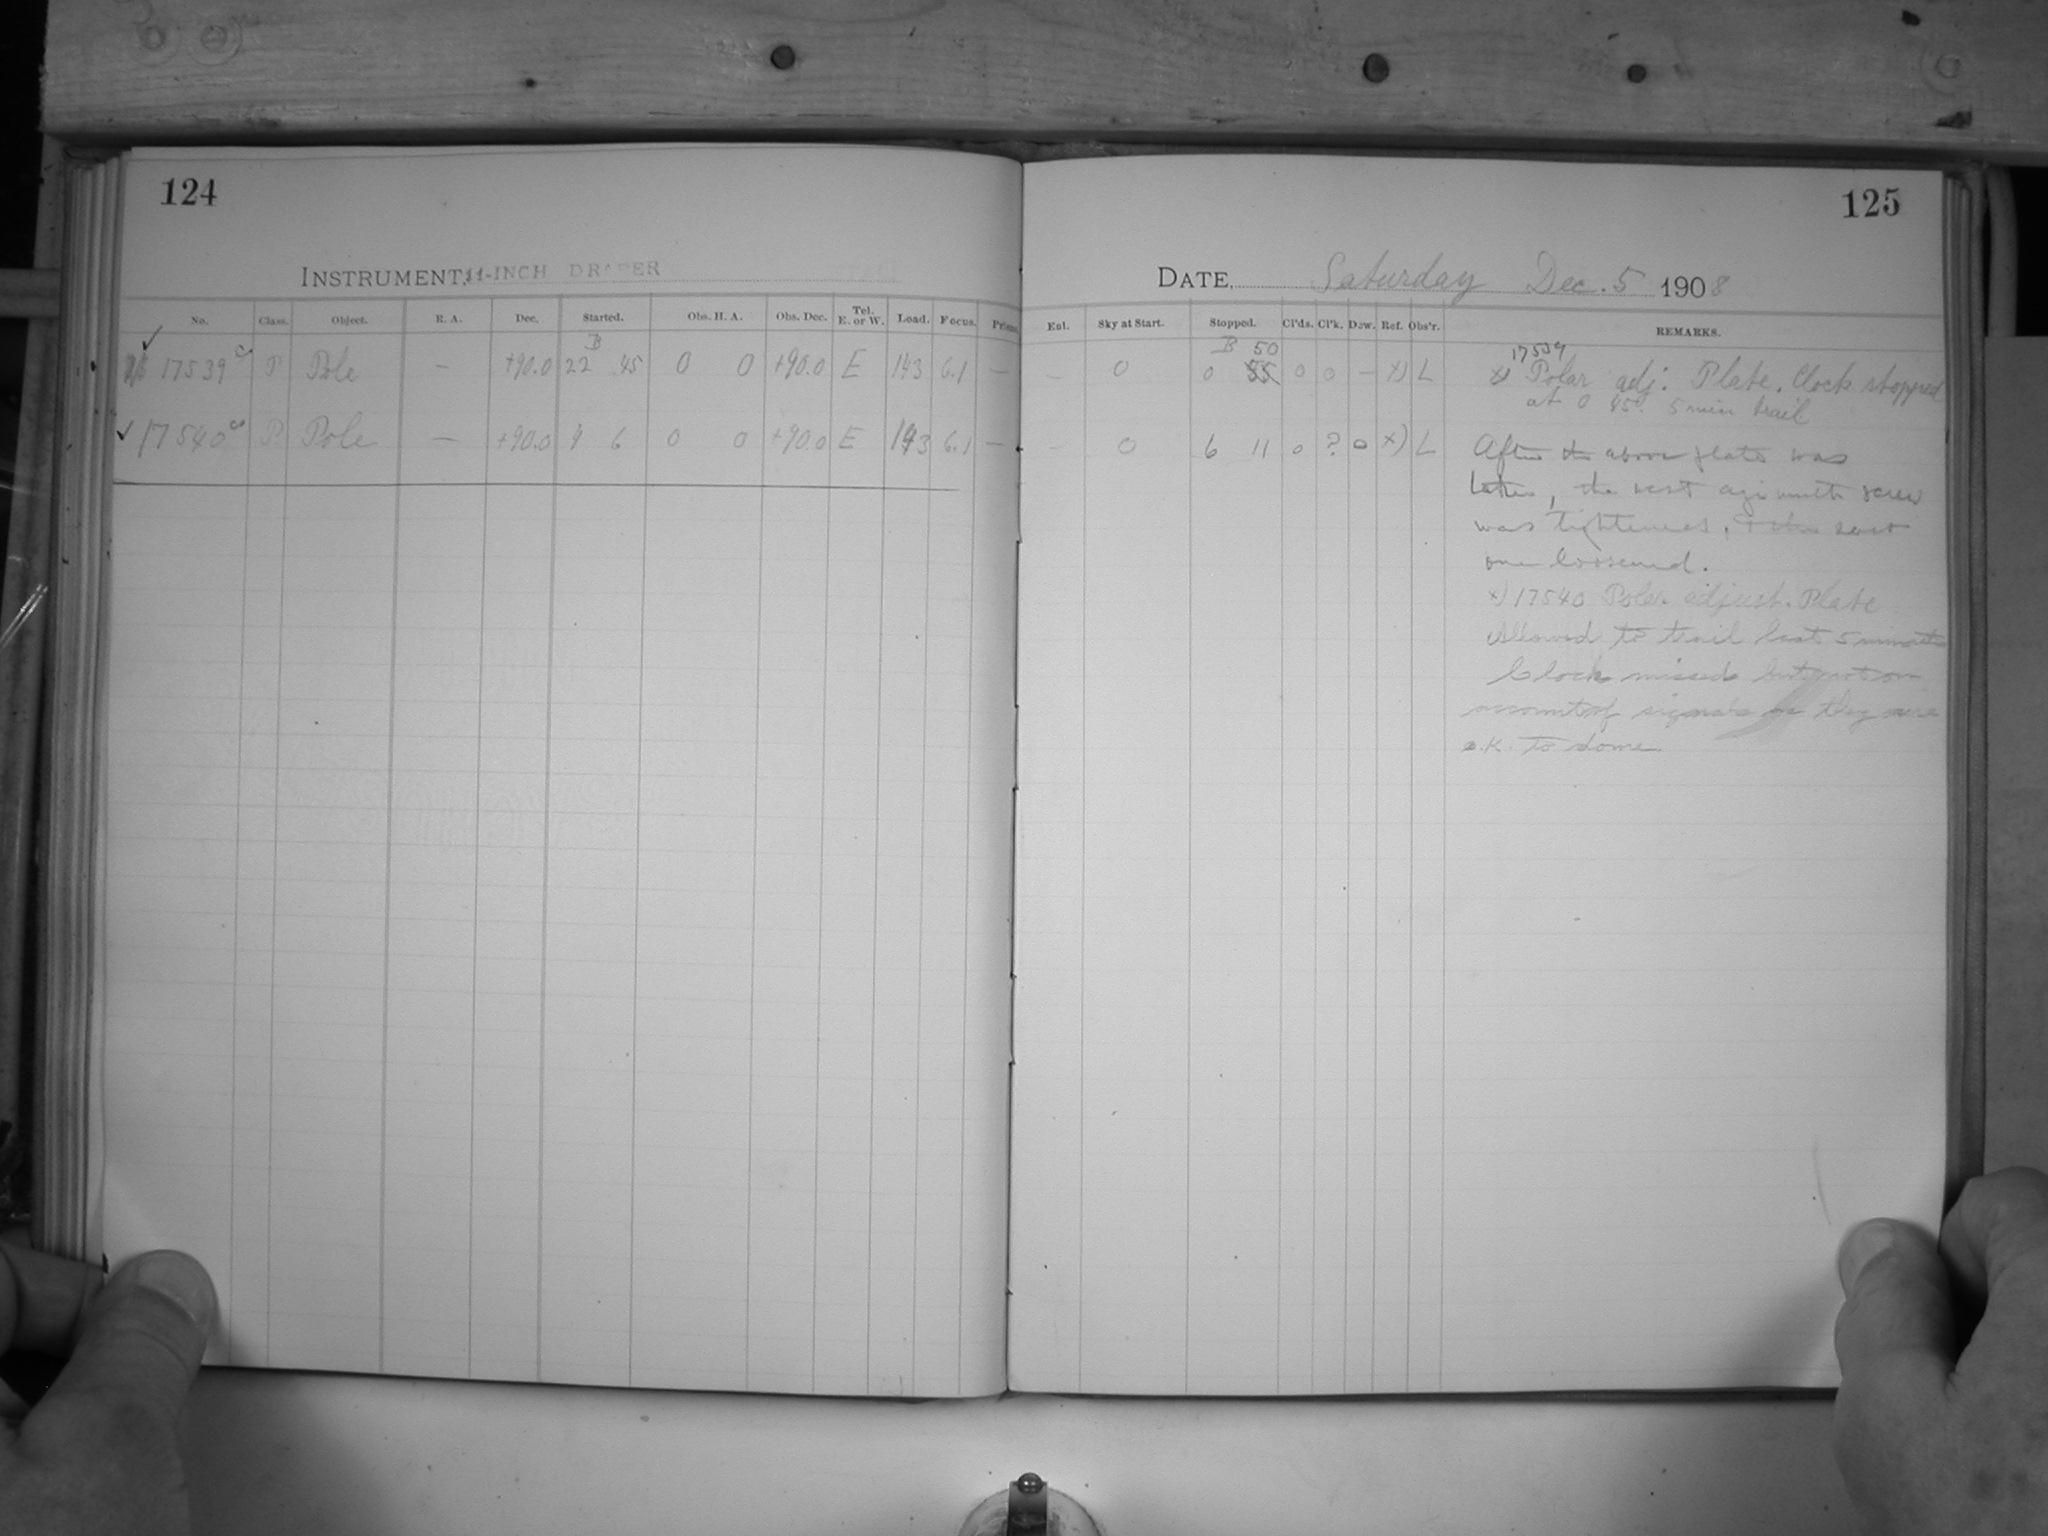 124
INSTRUMENT, 11-INCH DRAPER
No. Class. Object. R. A. Dec. Started. Obs. H. A. Obs. Dec. Tel. E. or W. Load. Focus. Prism.
B
17539 P Pole — +90.0 22 45 0 0 +90.0 E 143 6.1 —
✓ 17540 P Pole — +90.0 4 6 0 0 +90.0 E 143 6.1 —
125
DATE, Saturday Dec. 5 1908
Ent. Sky at Start. Stopped. Cl'ds. Cl'k. Dew. Ref. Obs'r. REMARKS.
B 50 17539
– 0 0 55 0 0 – x) L x) Polar adj. Plate. Clock stopped
at 0 45. 5 min trail
– 0 6 11 0 ? 0 x) L After the above plate was
taken, the west azimuth screw
was tightened, + the east
one loosened.
x) 17540 Polar adjust. Plate
Allowed to trail last 5 minutes
Clock missed but not on
account of signals as they were
o.k. to dome.